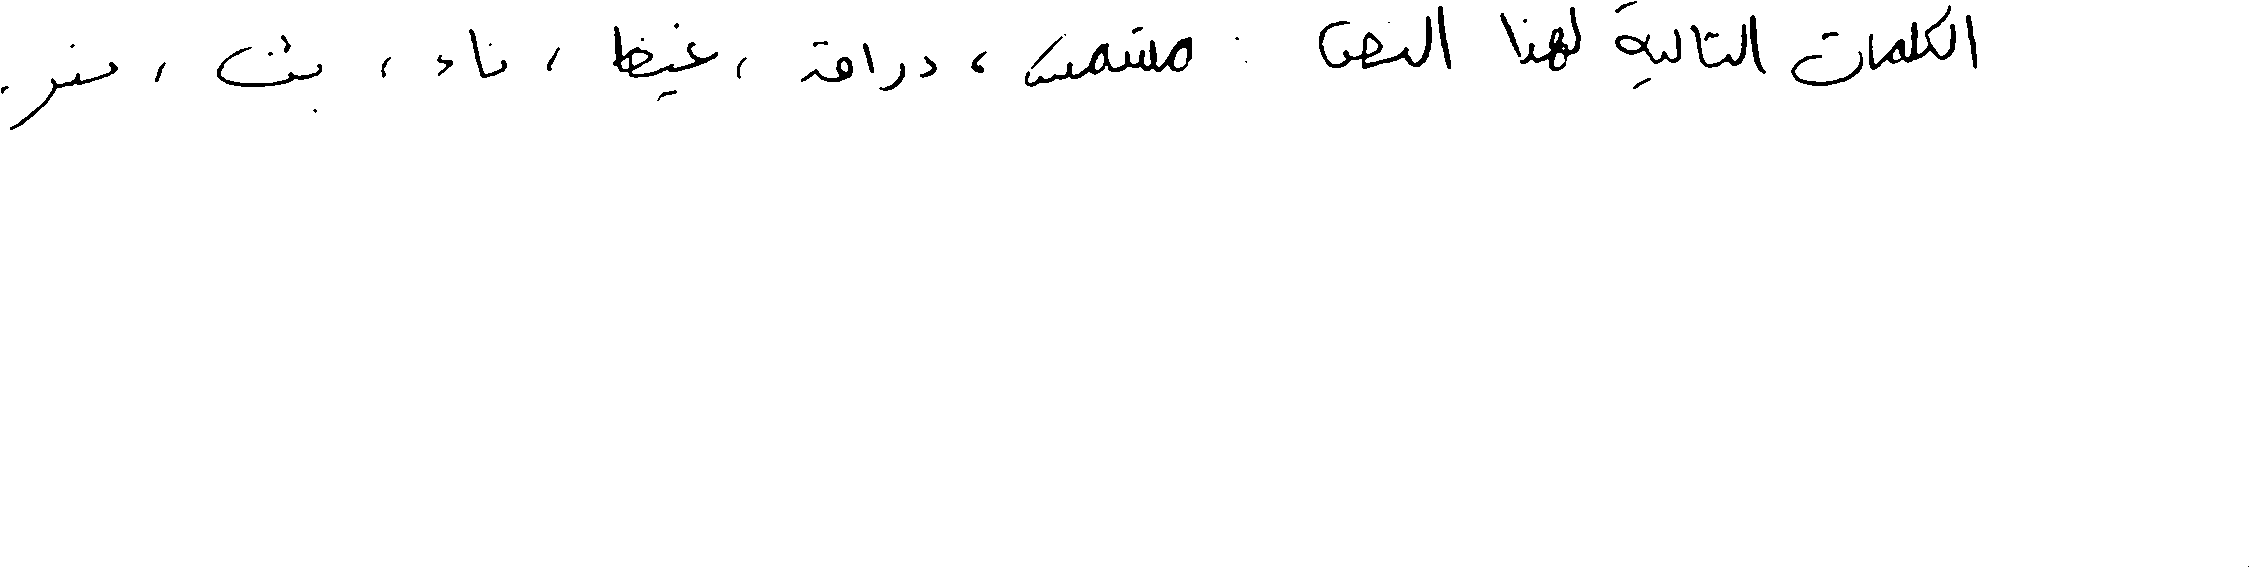 الكلمات التالية لهذا النص : مشمس ، دراقة ، غيظ ، ناد ، بث ،